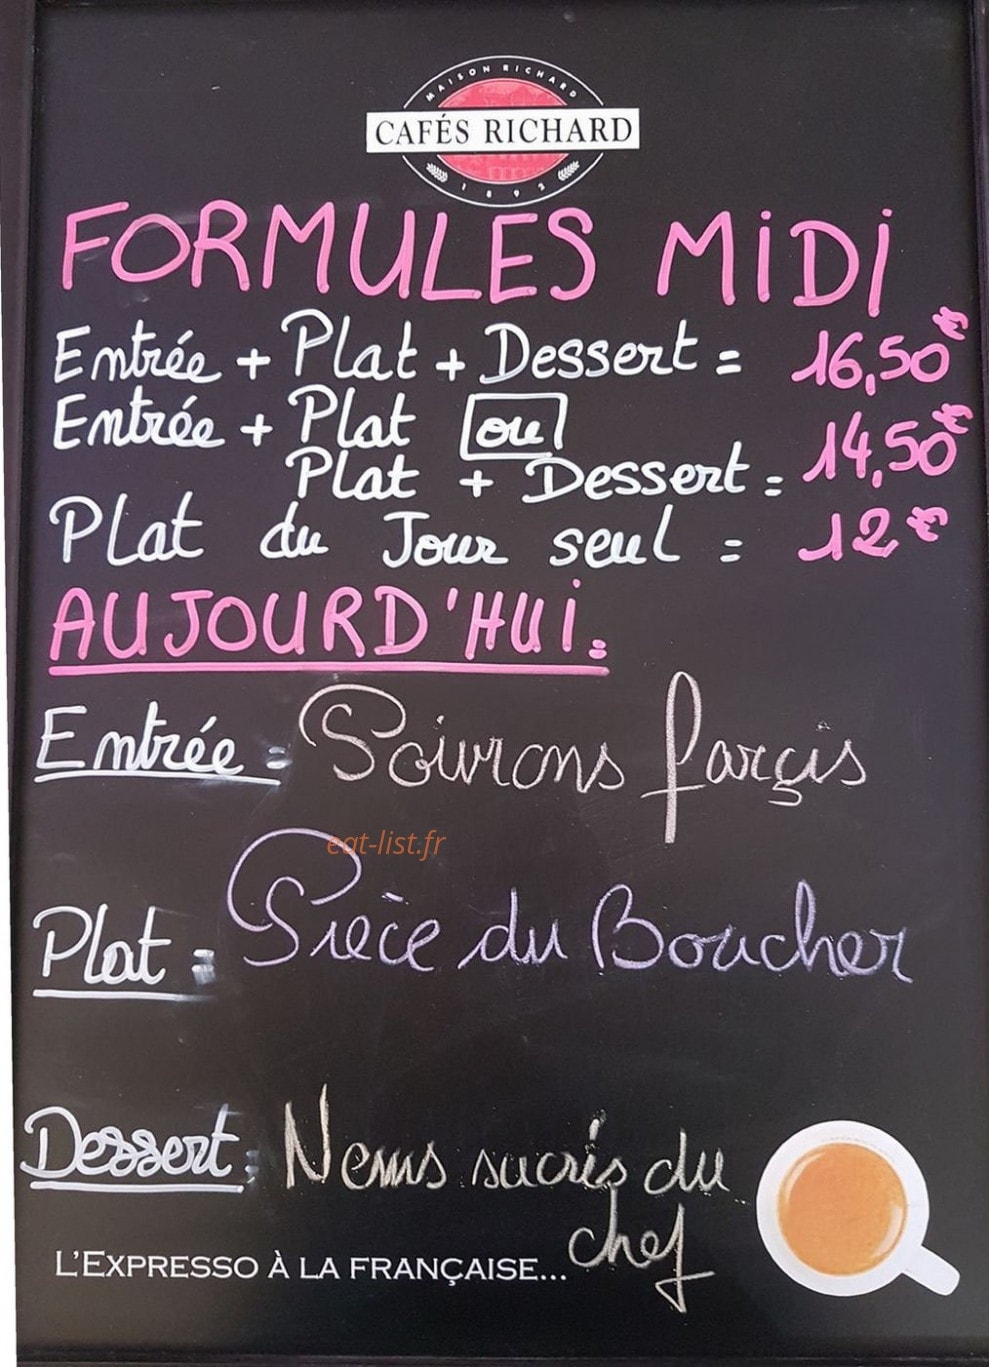 MAISON RICHARD
CAFÉS RICHARD
1892
FORMULES MIDI
Entrée + Plat + Dessert = 16,50€
Entrée + Plat ou
Plat + Dessert = 14,50€
Plat du Jour seul = 12€
AUJOURD'HUI :
Entrée : Poivrons farçis
eat-list.fr
Plat : Pièce du Boucher
Dessert : Nems sucrés du
chef
L'EXPRESSO À LA FRANÇAISE...